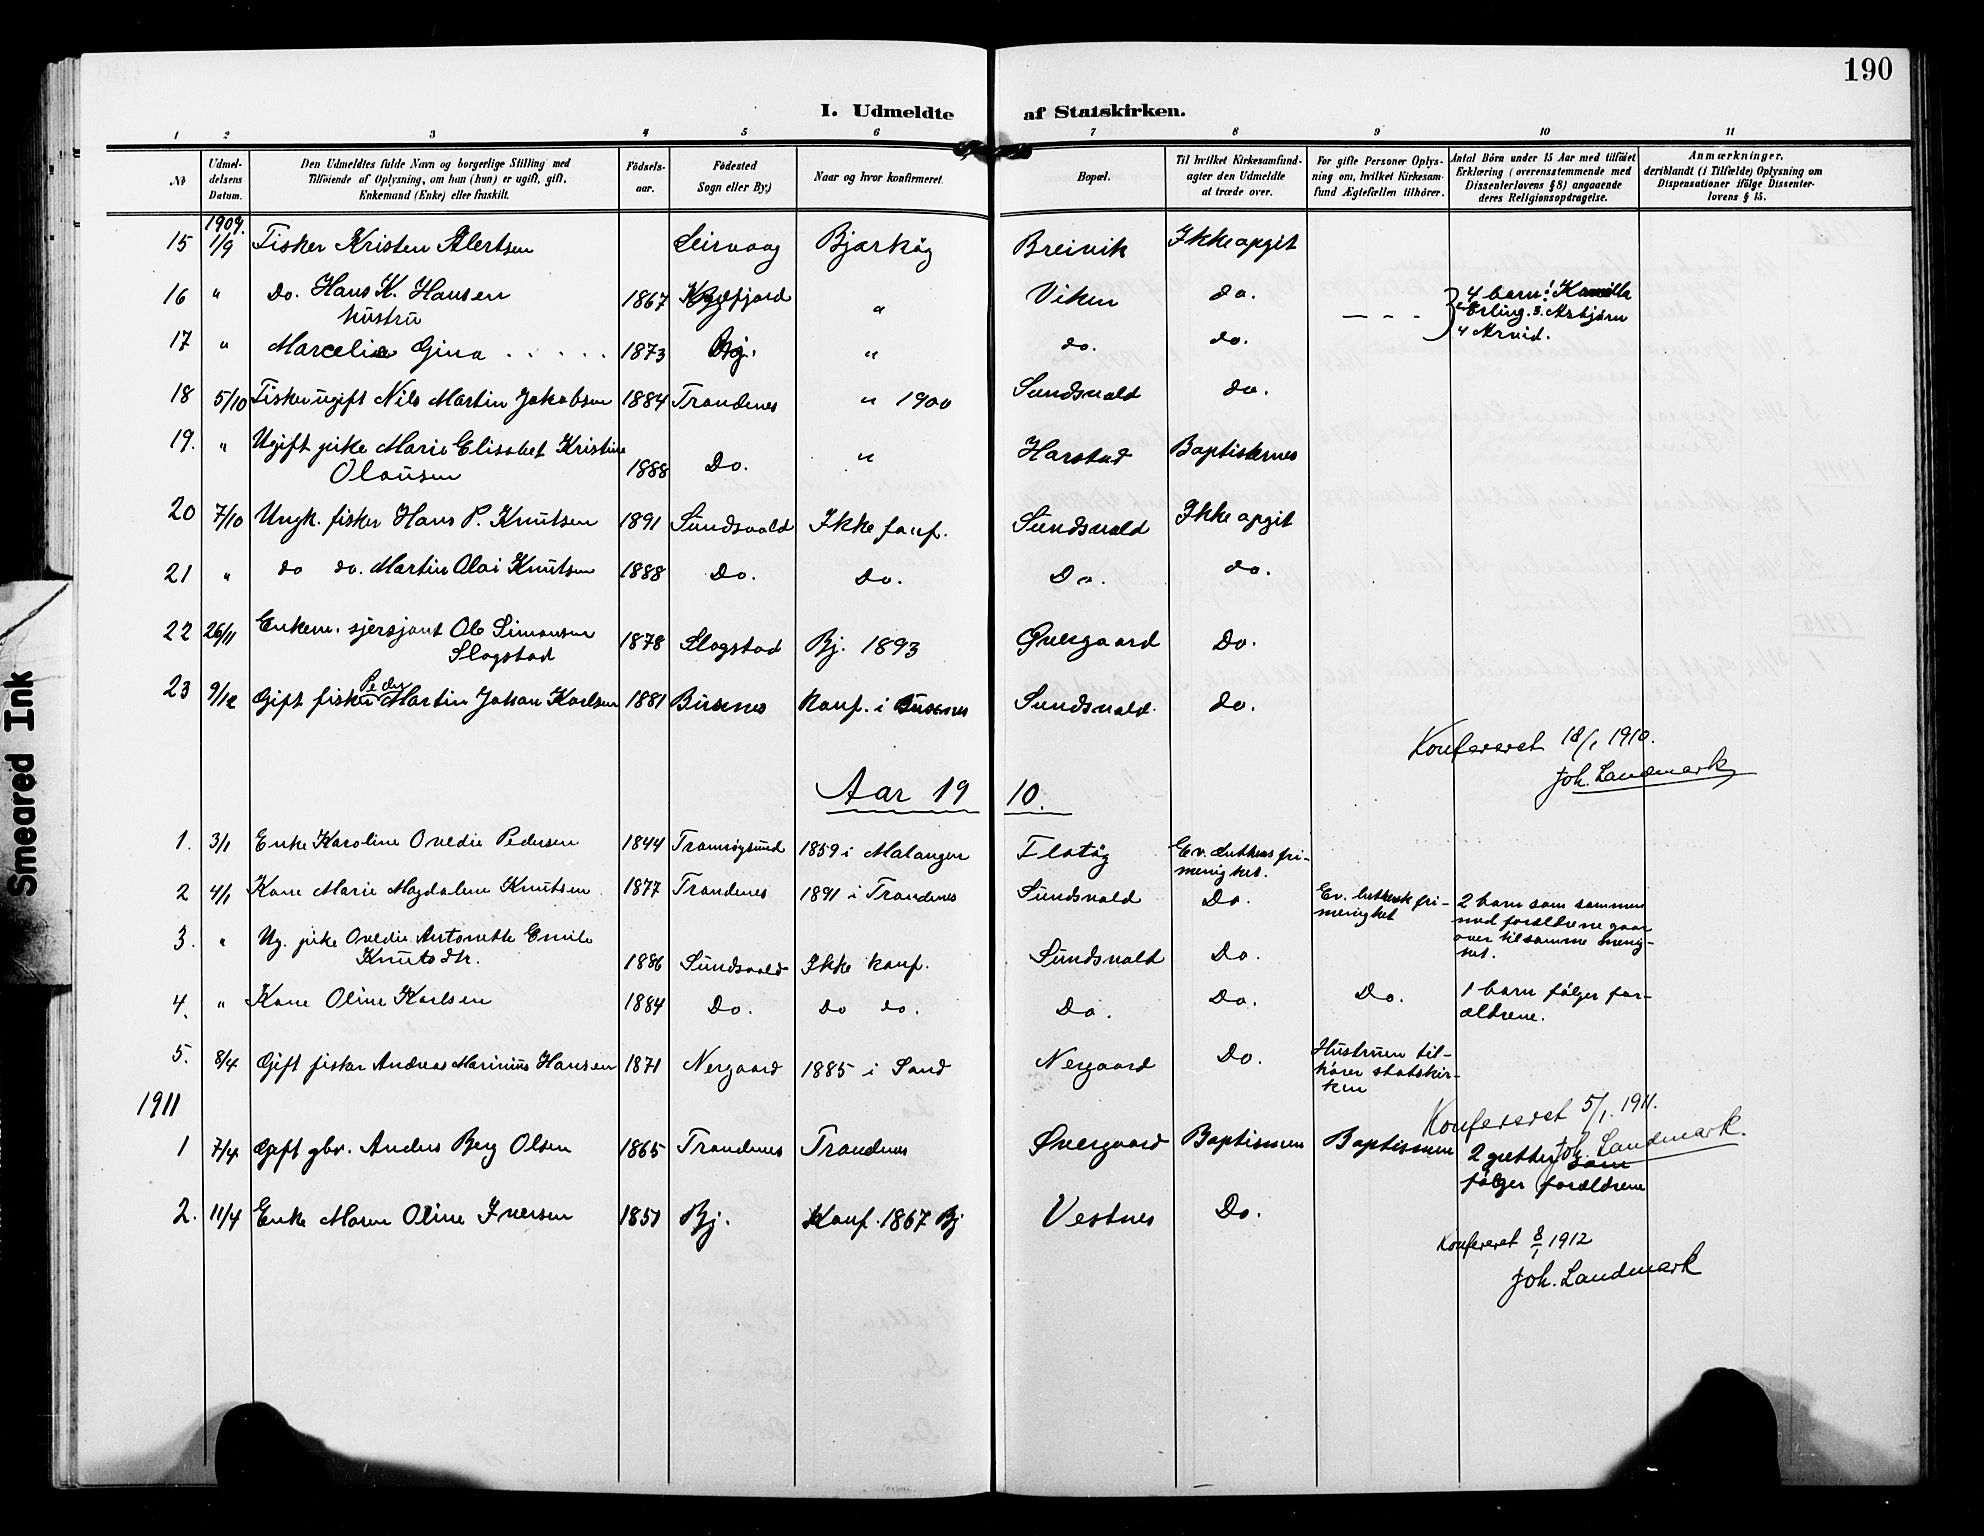 190
I. Udmeldte af Statskirken.
1 2 3 4 5 6 7 8 9 10 11
No
Udmeldelsens Datum.
Den Udmeldtes fulde Navn og borgerlige Stilling med
Tilföiende af Oplysning, om han (hun) er ugift, gift,
Enkemand (Enke) eller fraskilt.
Födselsaar.
Födested
Sogn eller By)
Naar og hvor konfirmeret.
Bopæl.
Til hvilket Kirkesamfund-
agter den Udmeldte
at træde over.
For gifte Personer Oplys-
ning om, hvilket Kirkesam-
fund Ægtefællen tilhörer.
Antal Börn under 15 Aar med tilföiet
Erklæring (overensstemmende med
Dissenterlovens § 8) angaaende
deres Religionsopdragelse.
Anmærkninger,
deriblandt (i Tilfælde) Oplysning om
Dispensationer ifölge Dissenter-
lovens § 15.
1909.
15 1/9 Fisker Kristen Alertsen Leirvaag Bjarköy Breivik Ikke opgit
16 " Do. Hans K. Hansen 1867 " Viken do. 4 barn: 1 Kamilla
hustru 2 Erling. 3. Asbjörn
17 " Marcelie Gina . . . . . 1873 Bj. " do. do. 4 Arvid.
18 5/10 Fisker ugift Nils Martin Jakobsen 1884 Trondenes " 1900 Sundsvold do.
19. " Ugift pike Marie Elisabet Kristine
Olausen 1888 Do. " Harstad Baptisternes
20 7/10 Ungk. fisker Hans P. Knutsen 1891 Sundsvold Ikke konf. Sundsvold Ikke opgit
21 " do do. Martin Olai Knutsen 1888 Do. Do. Do. do.
22 26/11 Enkem. sjersjant Ole Simonsen
Slogstad 1878 Slogstad Bj. 1893 Övergaard Do.
23 9/12 Gift fisker Peder Martin Johan Karlsen 1881 Buxnes konf. i Buxnes Sundsvold. do.
Konfereret 18/1 1910.
Joh. Landmark
Aar 1910.
1. 3/1 Enke Karoline Ovedie Pedersen 1844 Tromsöysund 1859 i Malangen Flatöy Ev. Luthers fri-
menighet.
2 4/1 Kone Marie Magdalene Knutsen 1877 Trondenes 1891 i Trondenes Sundsvold Do. Ev. luthersk fri-
menighet 2 barn som sammen
med forældrene gaar
over til samme menig-
het.
3. " Ug. pike Ovedie Antonette Emile
Knutsdtr. 1886 Sundsvold Ikke konf. Sundsvold Do.
4. " Kone Oline Karlsen 1884 Do. Do do. Do. Do. Do. 1 barn fölger for-
ældrene.
5. 8/4 Gift fisker Andreas Marinius Hansen 1871 Nergaard 1885 i Sand Nergaard Do. Hustruen til-
hörer statskir-
ken
1911
Konfereret 5/1. 1911.
Joh. Landmark.
1 7/4 Gift gbr. Anders Berg Olsen 1865 Trondenes Trondenes Övergaard Baptismen Baptismen 2 gutter som
fölger forældrene
2. 11/4 Enke Maren Oline Iversen 1851 Bj. Konf. 1867 Bj Vestnes Do.
Konfereret 8/1 1912
Joh. Landmark
Smeared Ink